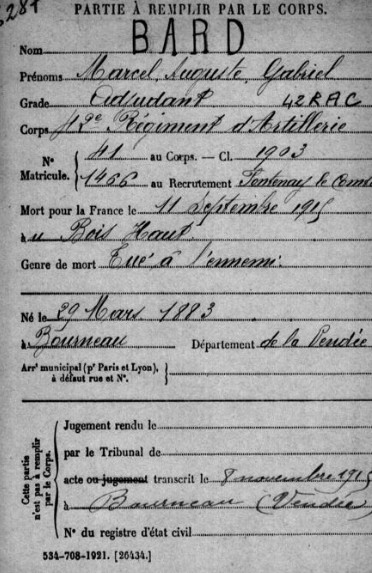 PARTIE À REMPLIR PAR LE CORPS.
Nom BARD
Prénoms Marcel Auguste Gabriel
Grade Adjudant 42 RAC
Corps 42e Régiment d'Artillerie
N° Matricule. { 41 au Corps. — Cl. 1903
1466 au Recrutement Fontenay le Comte
Mort pour la France le 11 Septembre 1915
à u Bois Haut
Genre de mort Tué à l'ennemi.
Né le 29 Mars 1883
à Bourneau Département de la Vendée
Arrt municipal (pr Paris et Lyon),
à défaut rue et N°.
Cette partie n'est pas à remplir par le Corps.
Jugement rendu le
par le Tribunal de
acte ou jugement transcrit le 8 novembre 1915
à Bourneau (Vendée)
N° du registre d'état civil
534-708-1921. [26434.]